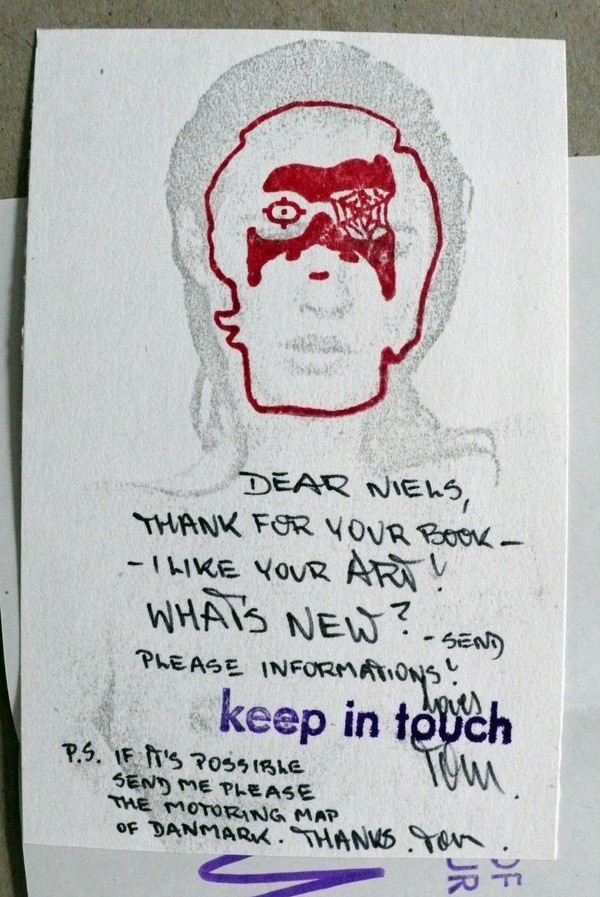 DEAR NIELS,
THANK FOR YOUR BOOK —
- I LIKE YOUR ART!
WHAT'S NEW?
- SEND
PLEASE INFORMATIONS!
Loves
keep in touch
Tom.
P.S. IF IT'S POSSIBLE
SEND ME PLEASE
THE MOTORING MAP
OF DANMARK. THANKS. Tom.
OF
UR